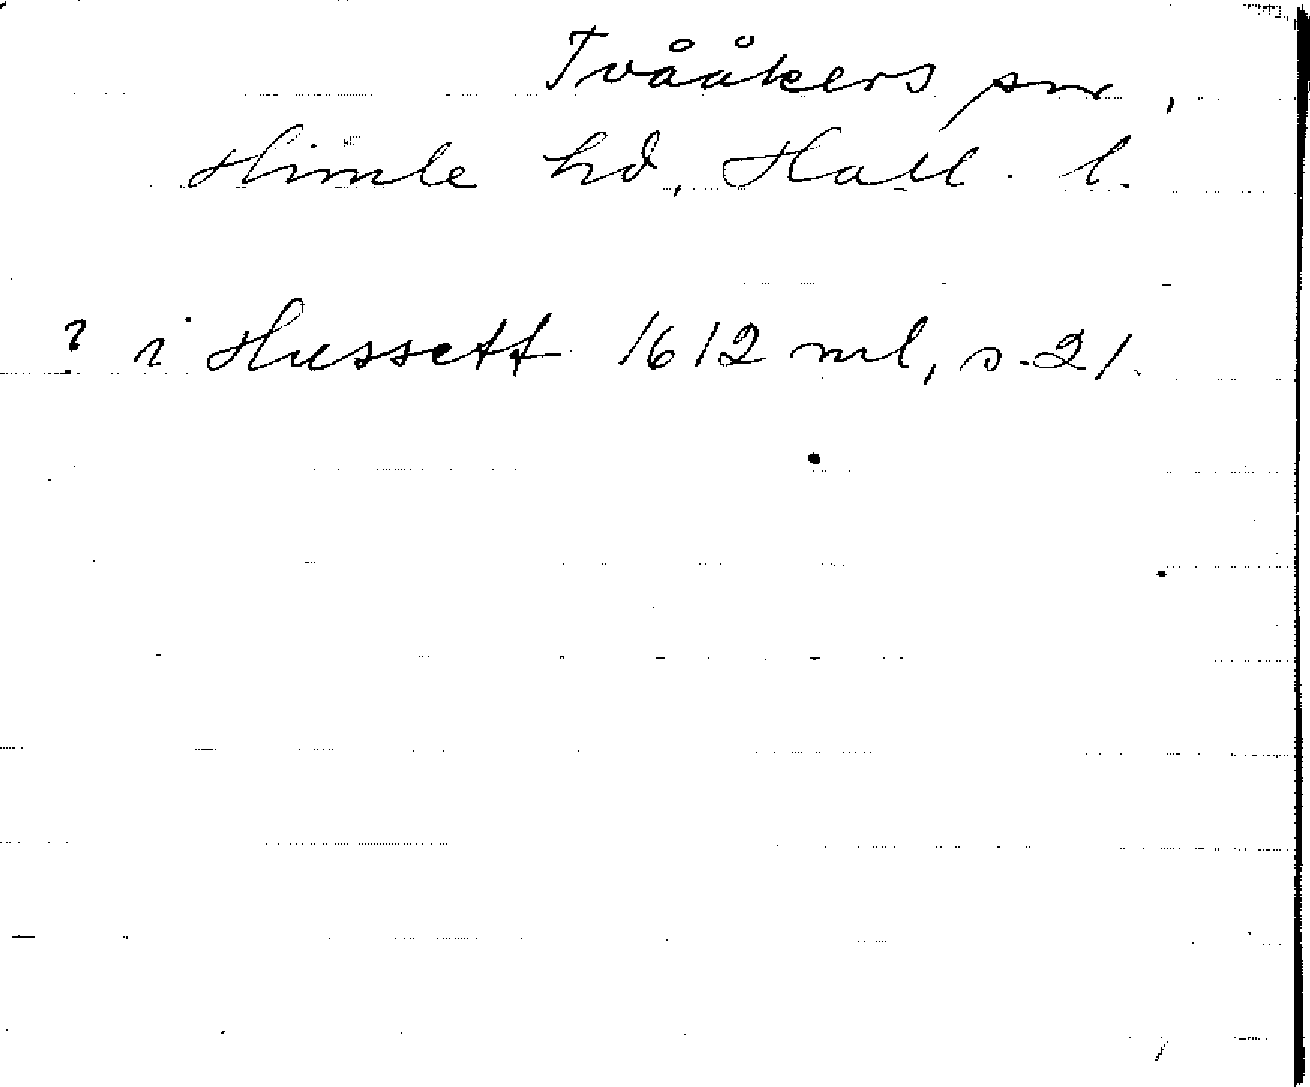 Tvååkers sn,
Himle hd, Hall. l.
? i Hussett 1612 ml, s. 21.